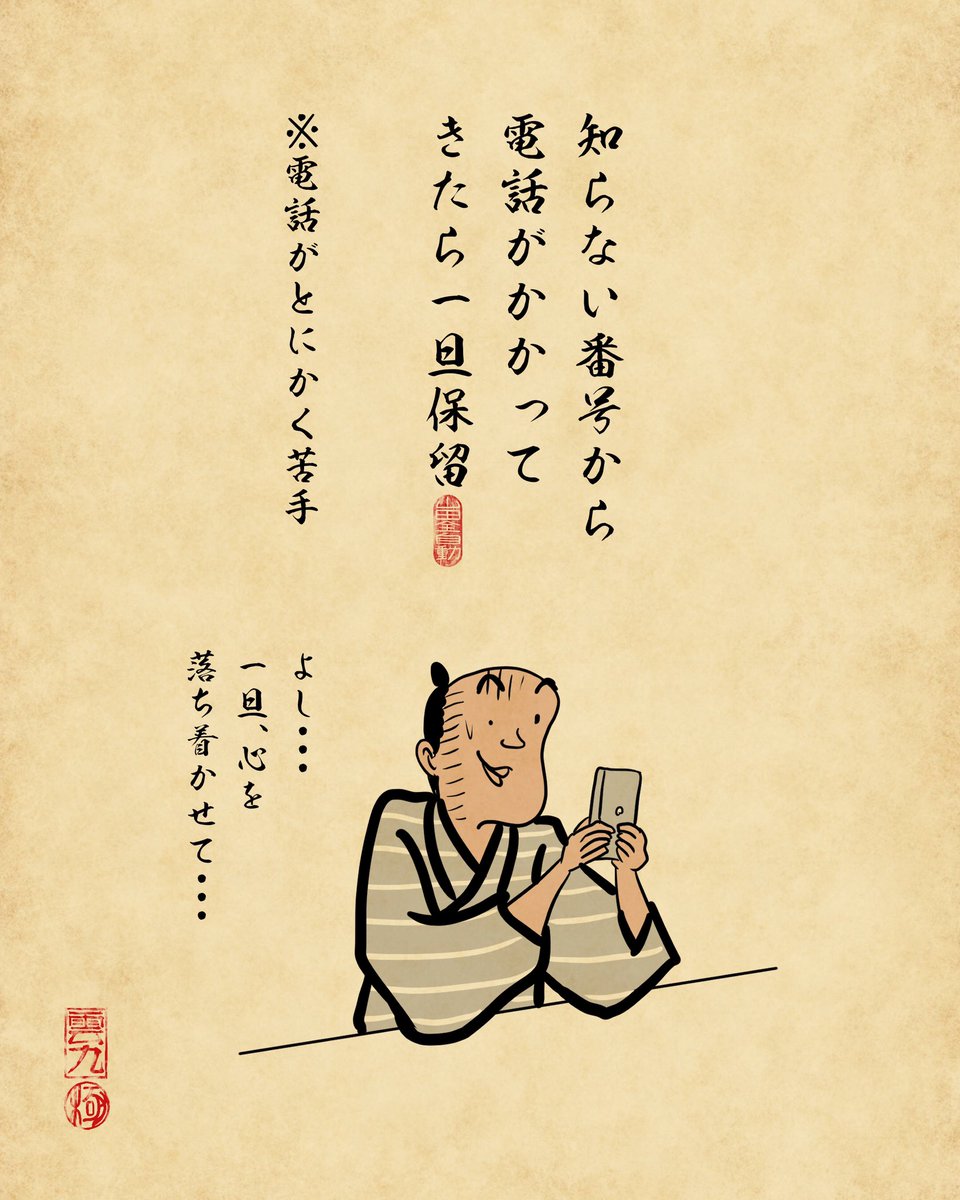 知らない番号から
電話がかかって
きたら一旦保留
※電話がとにかく苦手
よし・・・
一旦、心を
落ち着かせて・・・